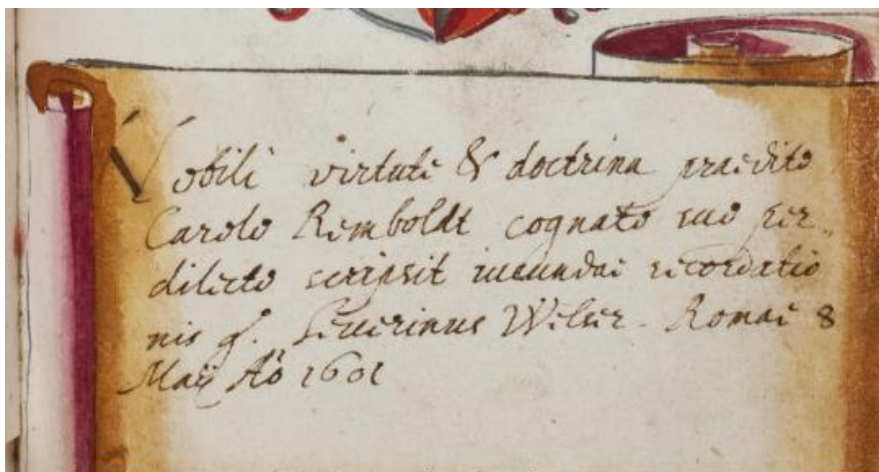 Nobili virtute & doctrina praedito
Carolo Remboldt cognato suo per„
dilecto scripsit iucundae recordatio
nis g. Seuerinus Welser. Romae 8
Maÿ Aõ 1601